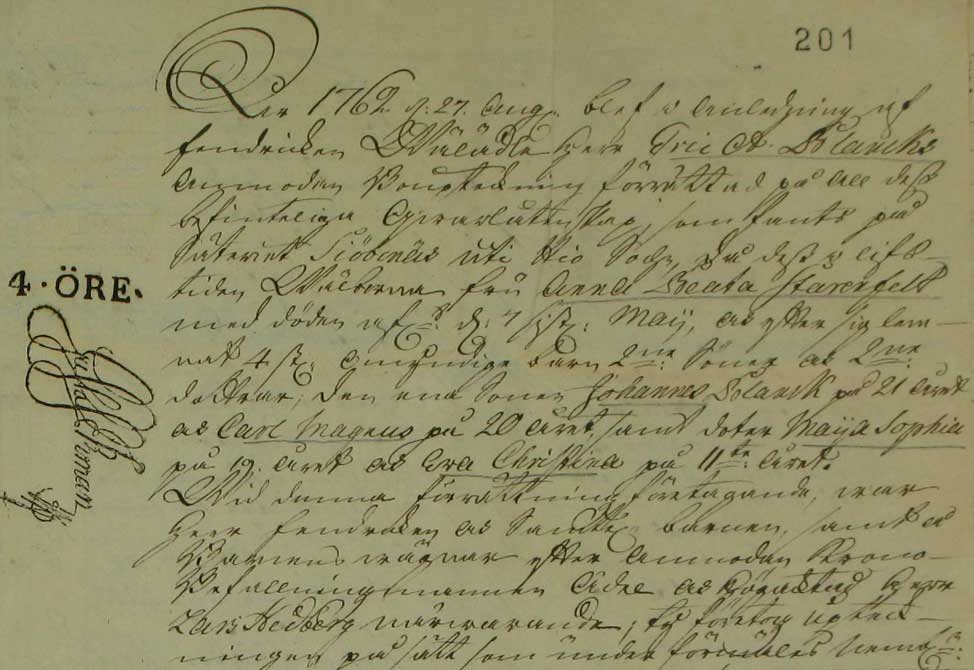 201
Åhr 1762 d: 27. Aug: blef i Anledning af
fendricken Wälädle Herr Eric A. Blancks
Anmodan Bouptekning förrättad på All dess
befinteliga qvarlåtenskap, som fants på
Säteriet Siöbonäs uti Hio Sochn, då dess i lifs-
tiden Wälborna fru Anna Beata Starenfelt
med döden afl: d: 7 sist: Maij, ac efter sig lem-
nat 4 st: omyndige barn 2ne: Söner ac 2ne:
döttrar; den ena Sonen Johannes Blanck på 21 året
ac Carl Magnus på 20 året, samt doter Maija Sophia
på 19. året ac Eva Christina på 11te: året.
Wid denna förrättnings företagande, war
Herr fendricken ac Samtl: barnen, samt å
Barnens wägnar efter Anmodan Krono-
Befallningsmannen Ädle ac Högacktad Herr
Lars Hedberg närwarande; ty företogs upteck-
ningen på sätt som under förmäles nemb:
4. ÖRE.